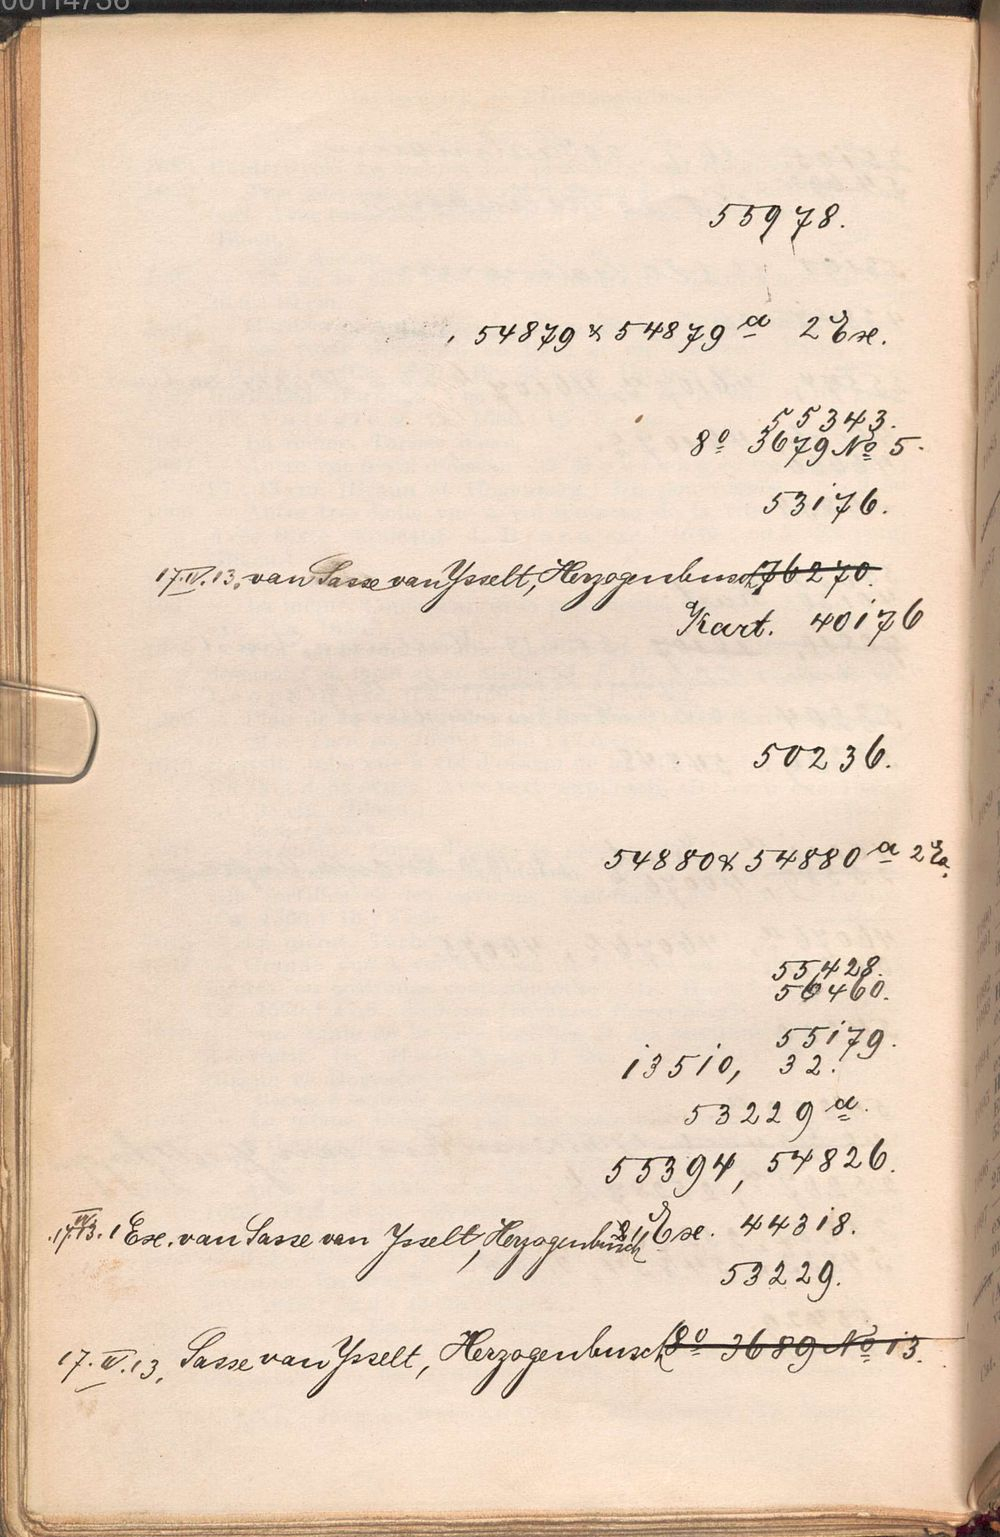 00114736
55978.
54879 & 54879 a 2 Ex.
55343.
8o 3679 No 5.
53176.
17.IV.13. van Sasse van Ysselt, Herzogenbusch 76270.
Kart. 40176
50236.
54880 & 54880 a 2 Ex.
55428.
56460.
55179.
13510, 32.
53229 a.
55394, 54826.
17.IV.13. 1 Ex. van Sasse van Ysselt, Herzogenbusch Ex. 44318.
53229.
17.IV.13. Sasse van Ysselt, Herzogenbusch 8o 3689 No 13.